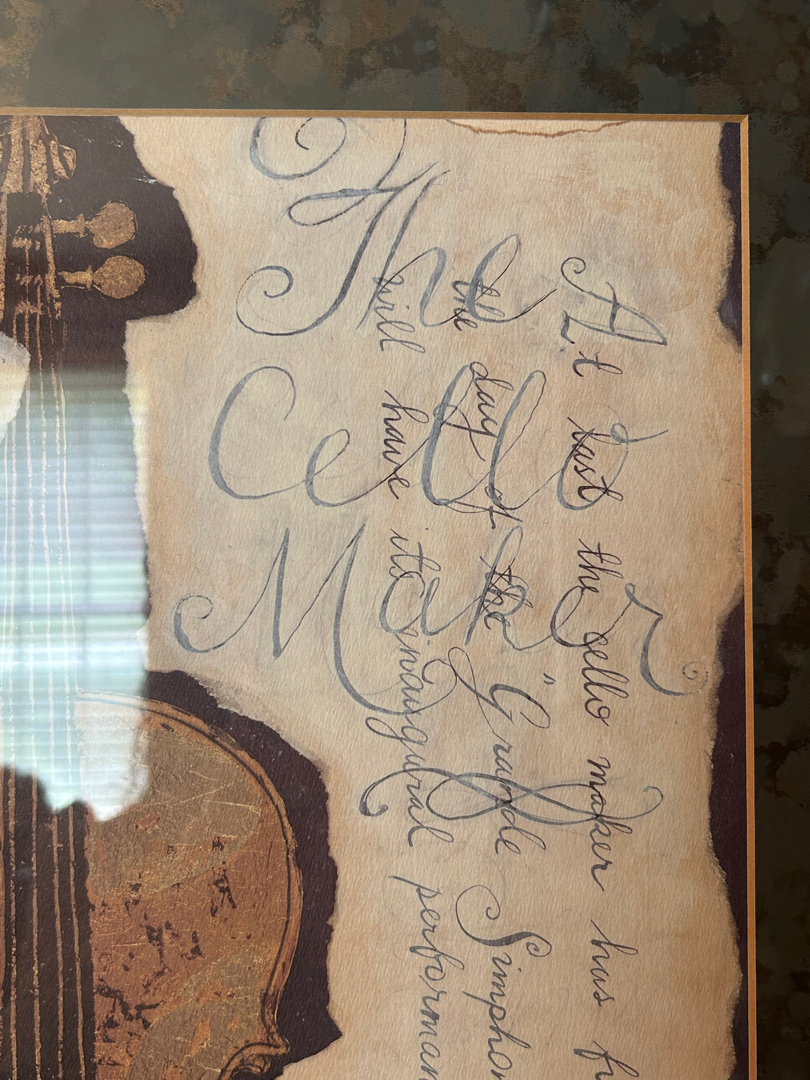 The
Cello
Maker
At last the cello maker has
the day of the "Grande
will have its inaugural